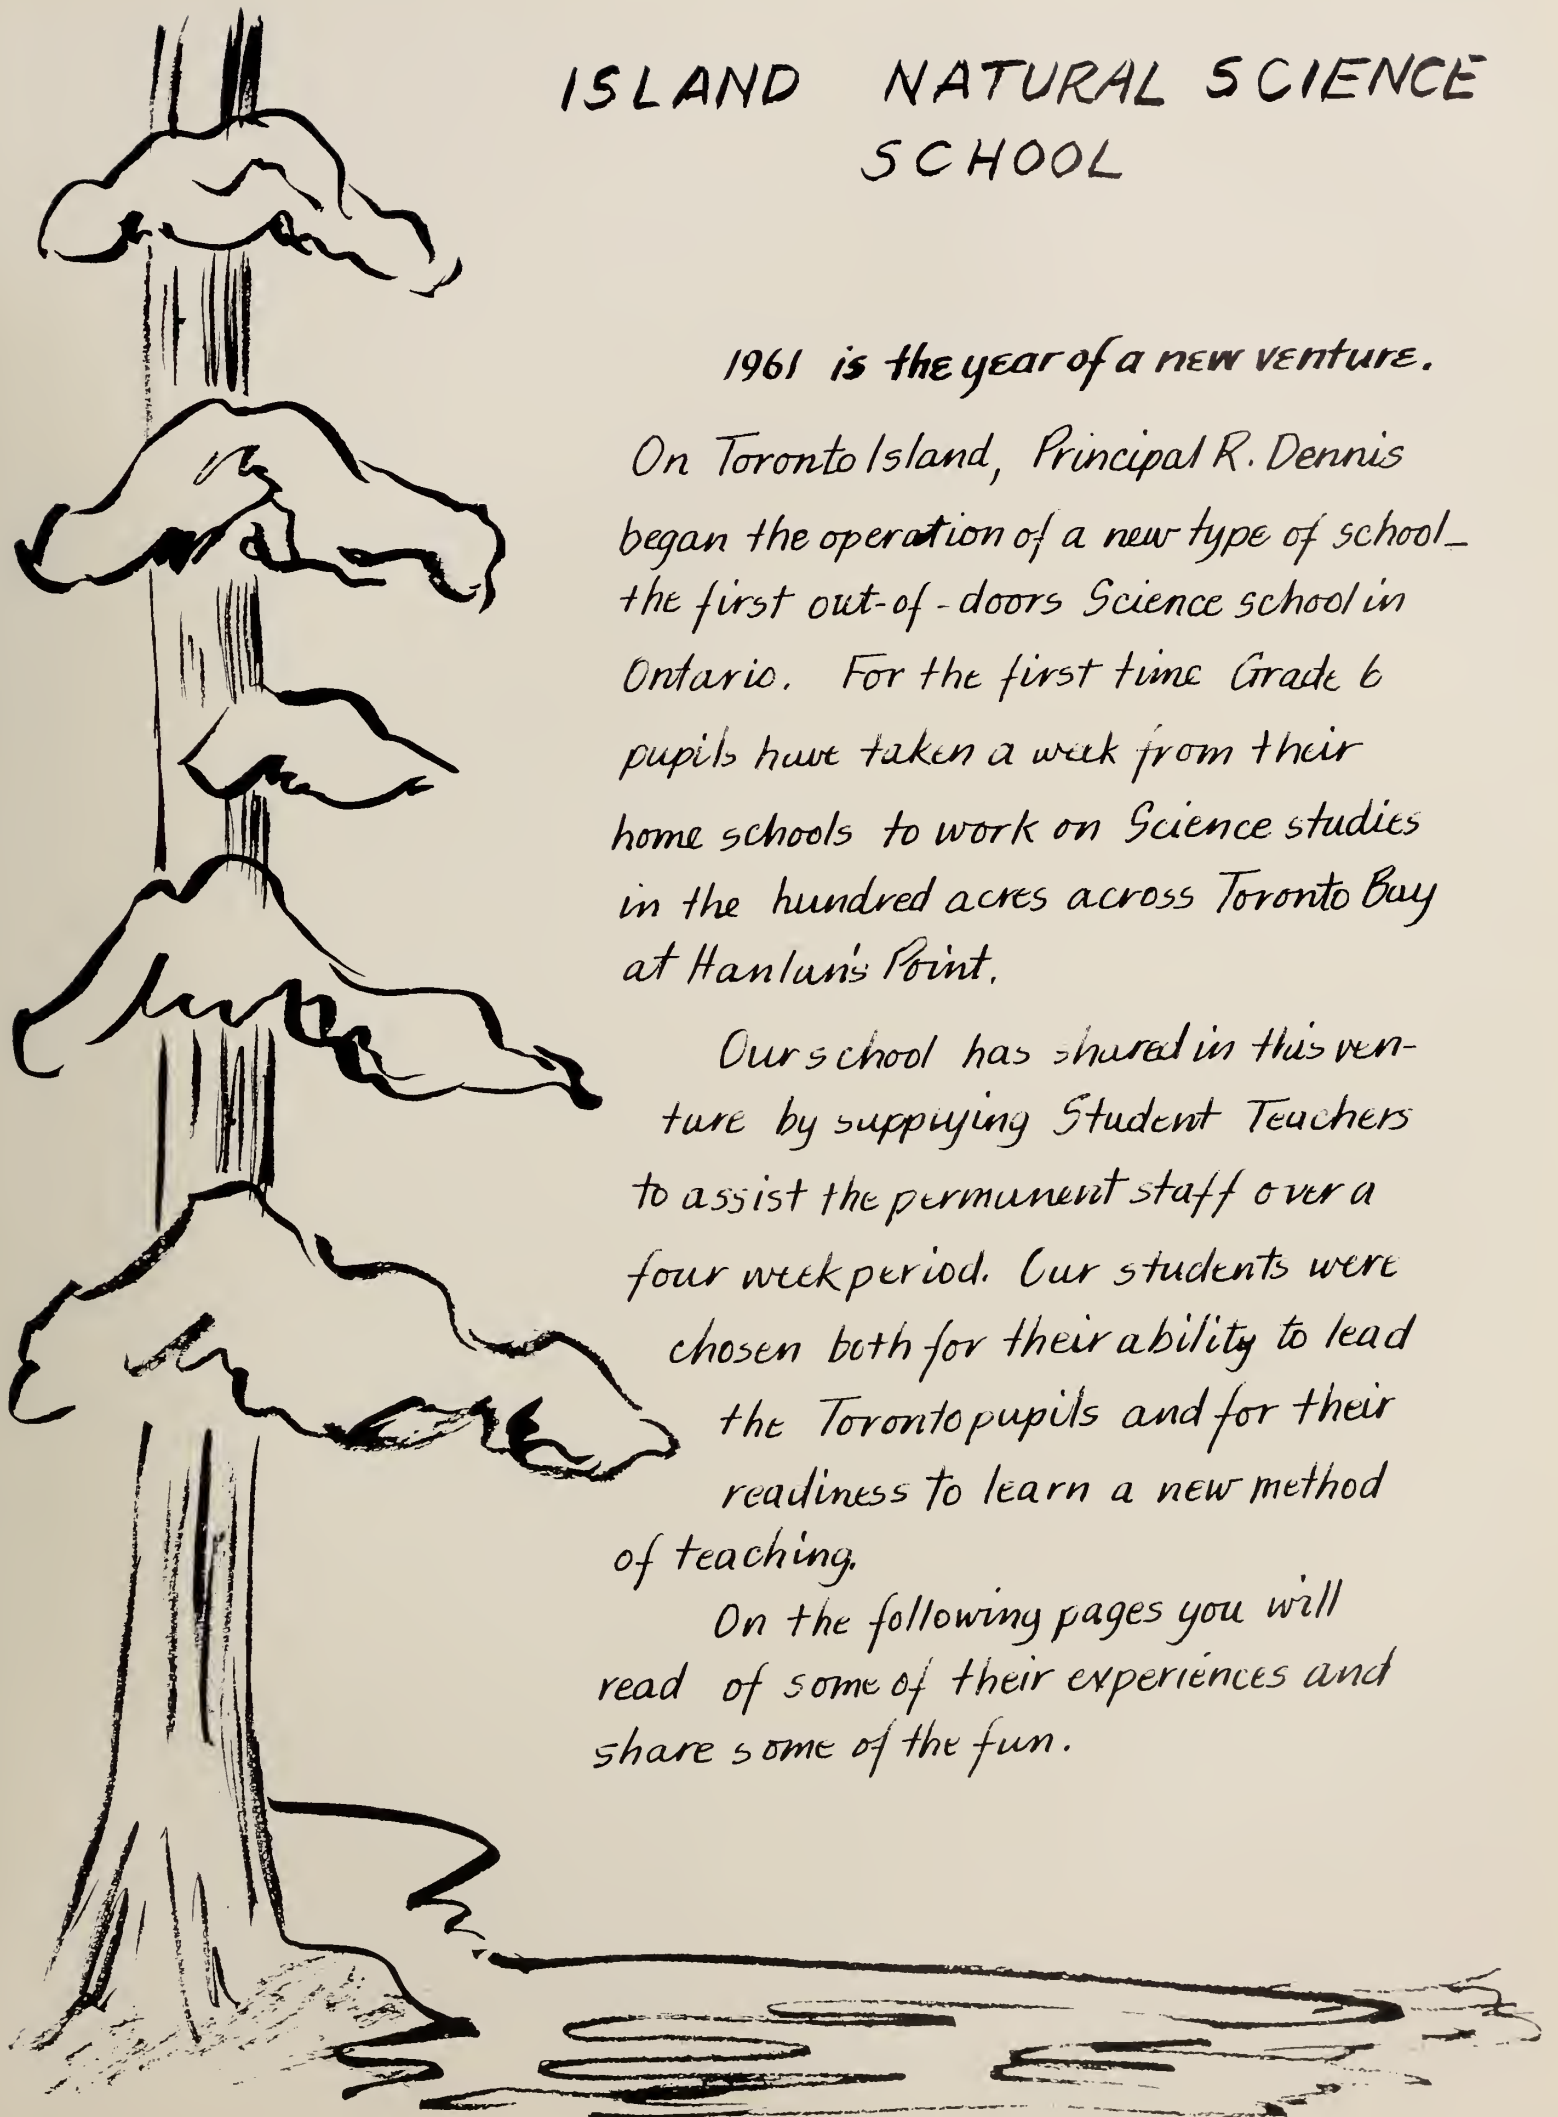 ISLAND NATURAL SCIENCE
SCHOOL
1961 is the year of a new venture.
On Toronto Island, Principal R. Dennis
began the operation of a new type of school_
the first out-of-doors Science school in
Ontario. For the first time Grade 6
pupils have taken a week from their
home schools to work on Science studies
in the hundred acres across Toronto Bay
at Hanlan's Point.
Our school has shared in this ven-
ture by supplying Student Teachers
to assist the permanent staff over a
four week period. Our students were
chosen both for their ability to lead
the Toronto pupils and for their
readiness to learn a new method
of teaching.
On the following pages you will
read of some of their experiences and
share some of the fun.